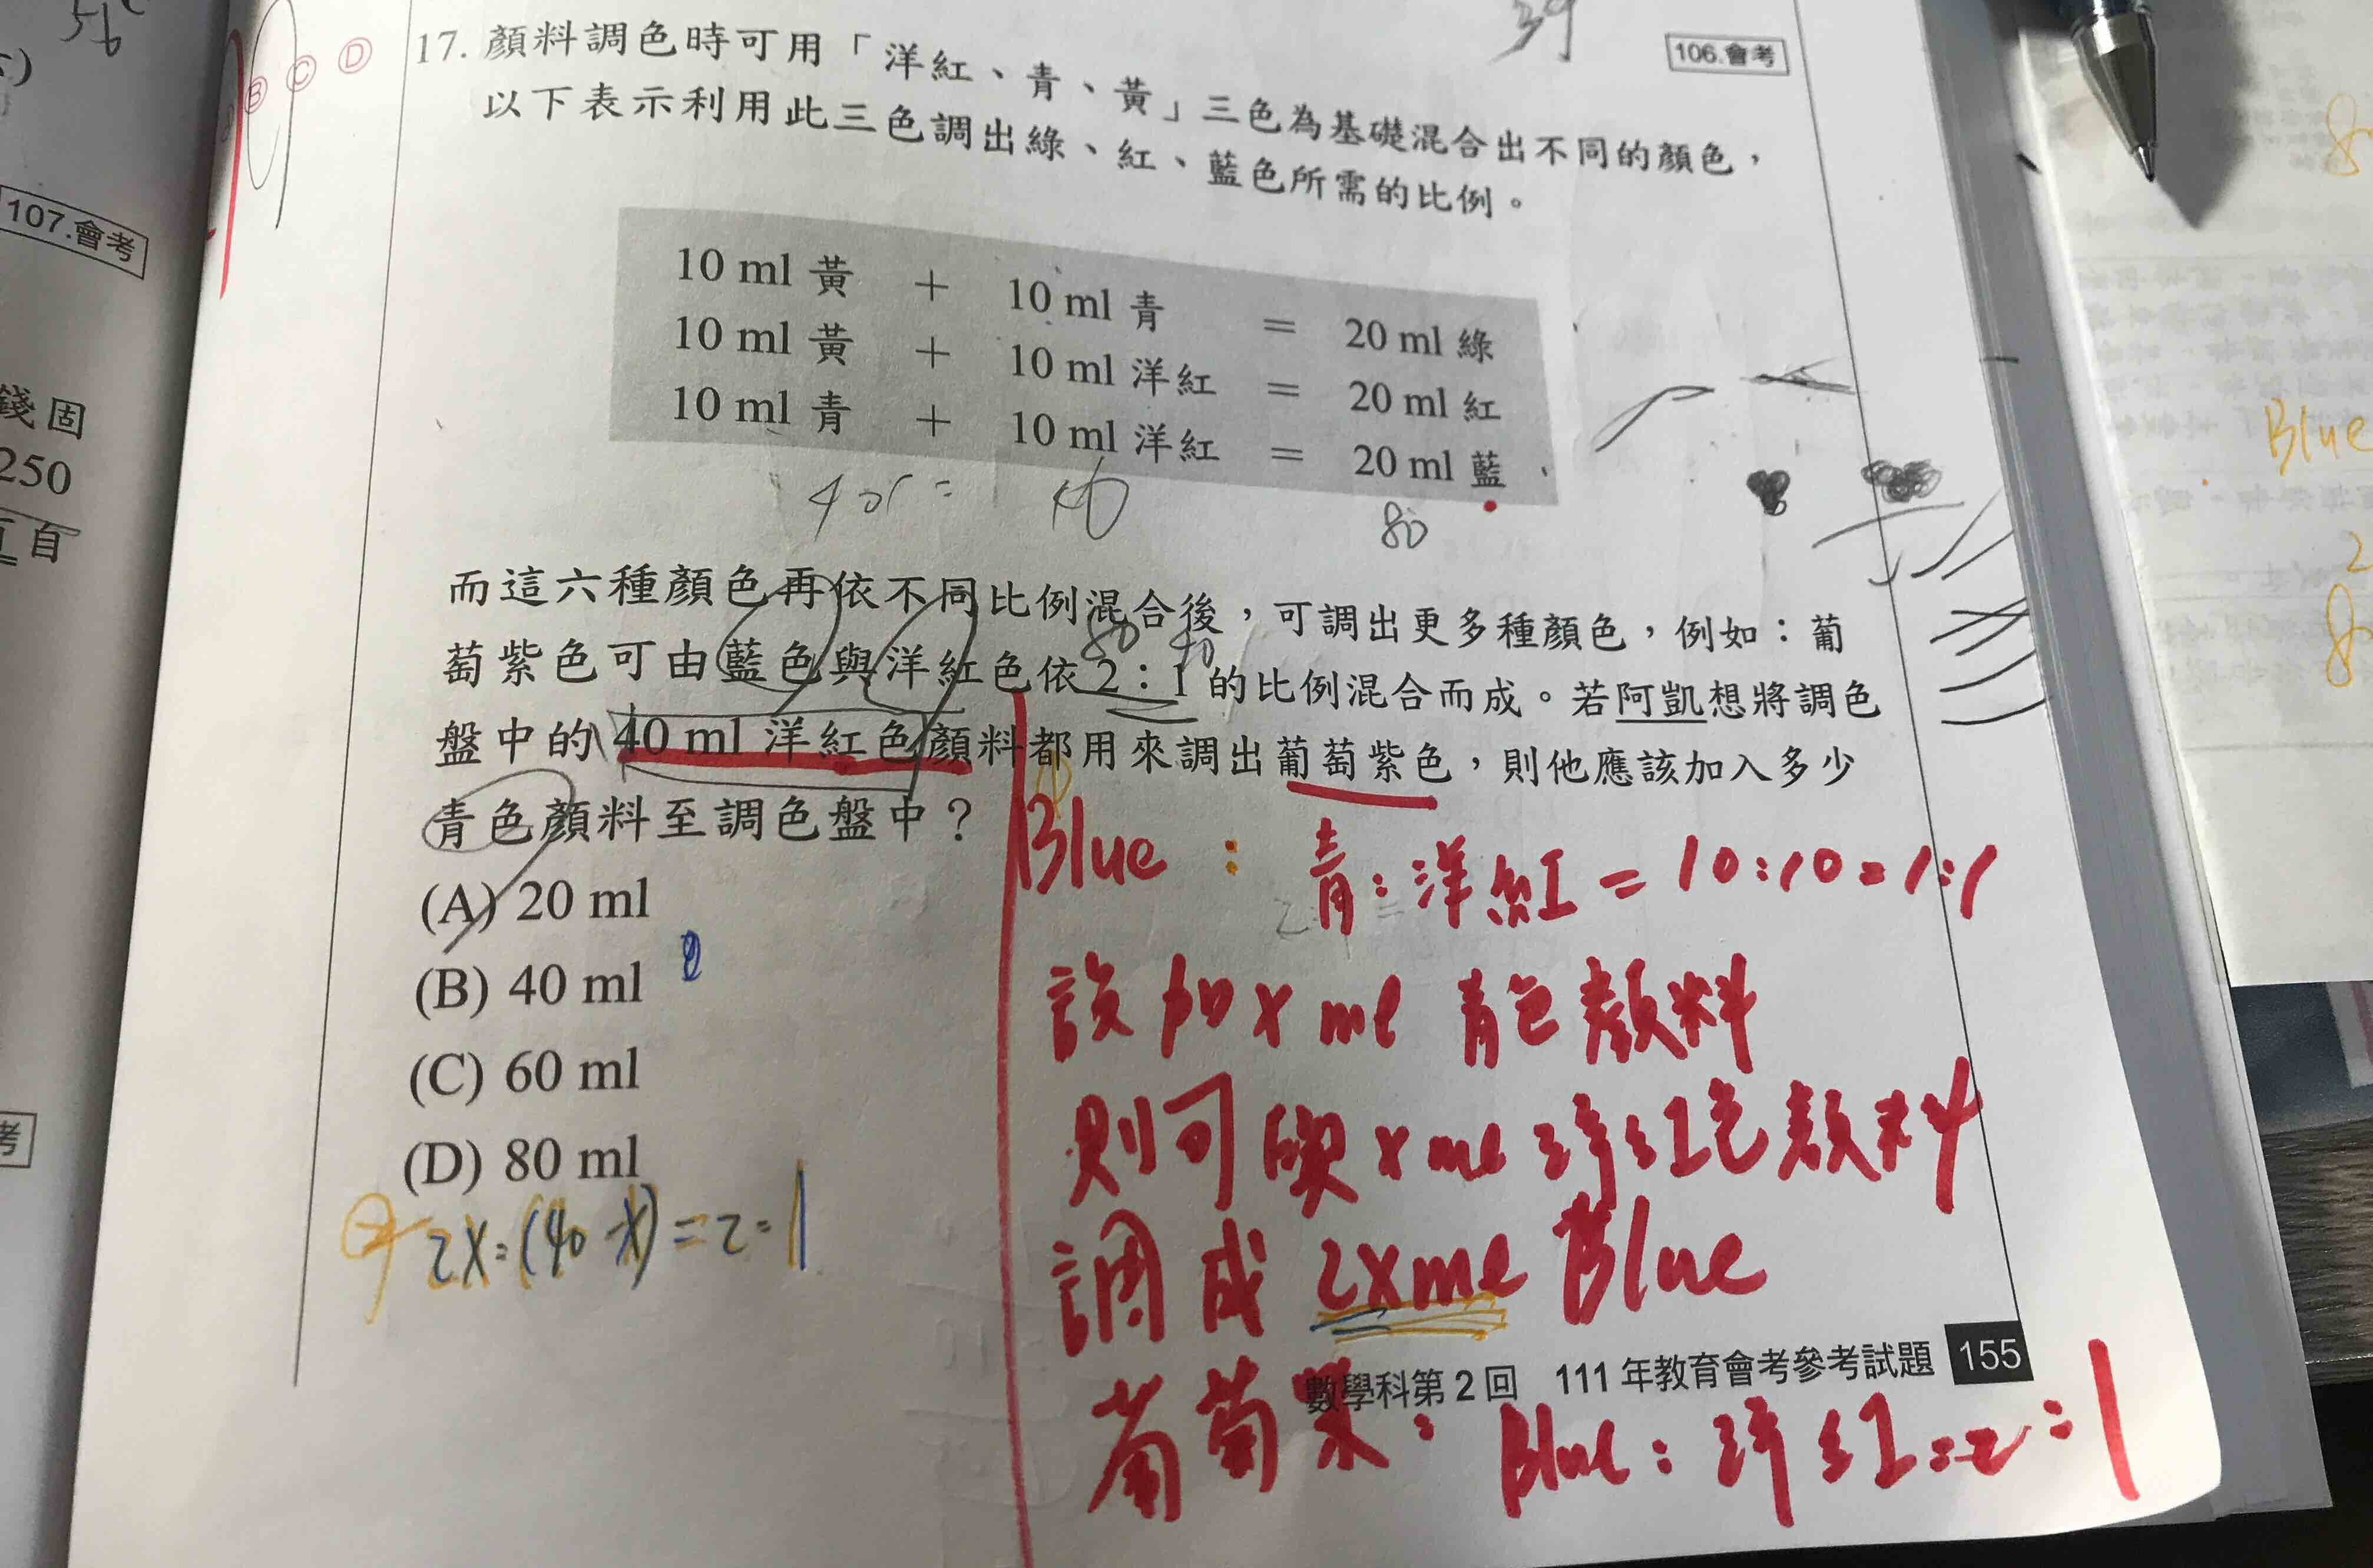 107.會考
錢固
250
頁自
考
Ⓑ Ⓒ Ⓓ
106.會考
17. 顏料調色時可用「洋紅、青、黃」三色為基礎混合出不同的顏色，
以下表示利用此三色調出綠、紅、藍色所需的比例。
10 ml 黃 + 10 ml 青 = 20 ml 綠
10 ml 黃 + 10 ml 洋紅 = 20 ml 紅
10 ml 青 + 10 ml 洋紅 = 20 ml 藍
80
而這六種顏色再依不同比例混合後，可調出更多種顏色，例如：葡
80 40
萄紫色可由藍色與洋紅色依 2：1 的比例混合而成。若阿凱想將調色
盤中的 40 ml 洋紅色顏料都用來調出葡萄紫色，則他應該加入多少
青色顏料至調色盤中？
(A) 20 ml
(B) 40 ml
(C) 60 ml
(D) 80 ml
2X:(40-X)=2:1
Blue : 青:洋紅=10:10=1:1
設加x ml 青色顏料
則可與xml洋紅色顏料
調成2xml Blue
葡萄紫: Blue:洋紅=2:1
數學科第2回 111年教育會考參考試題 155
Blue
2
8